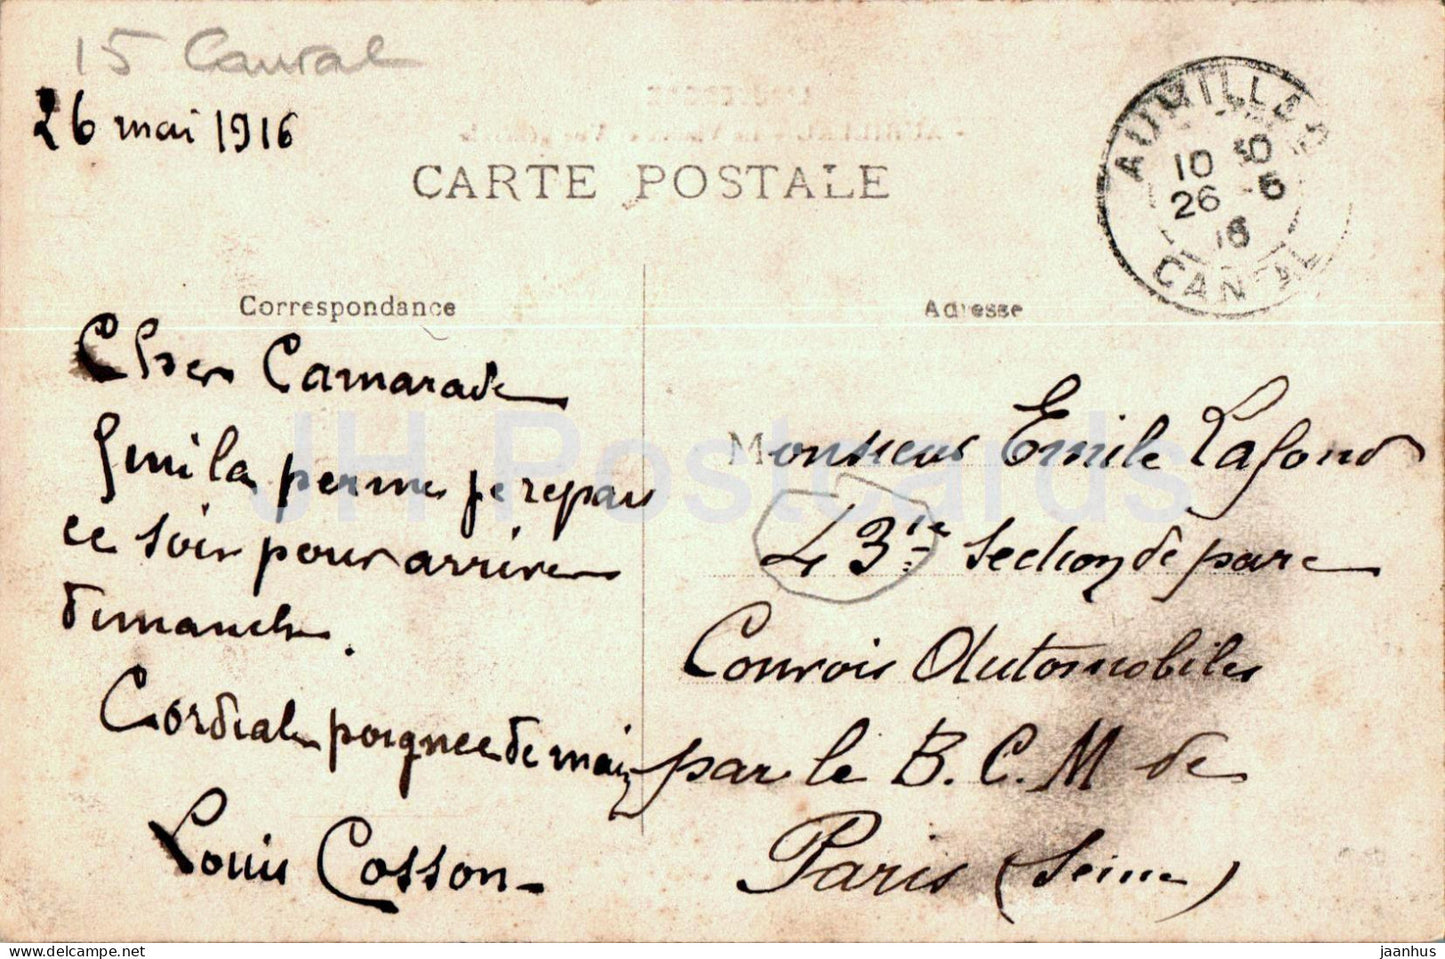 15 Cantal
26 mai 1916
CARTE POSTALE
AURILLAC
10 30
26 -5
16
CANTAL
Correspondance
Adresse
Cher Camarade
Fini la perme, je repars
ce soir pour arriver
dimanche.
Cordiale poignée de main
Louis Cosson
Monsieur Emile Lafond
43ie Section de parc
Convois Automobiles
par le B.C.M de
Paris (Seine)
JH Postcards
jaanhus
www.delcampe.net